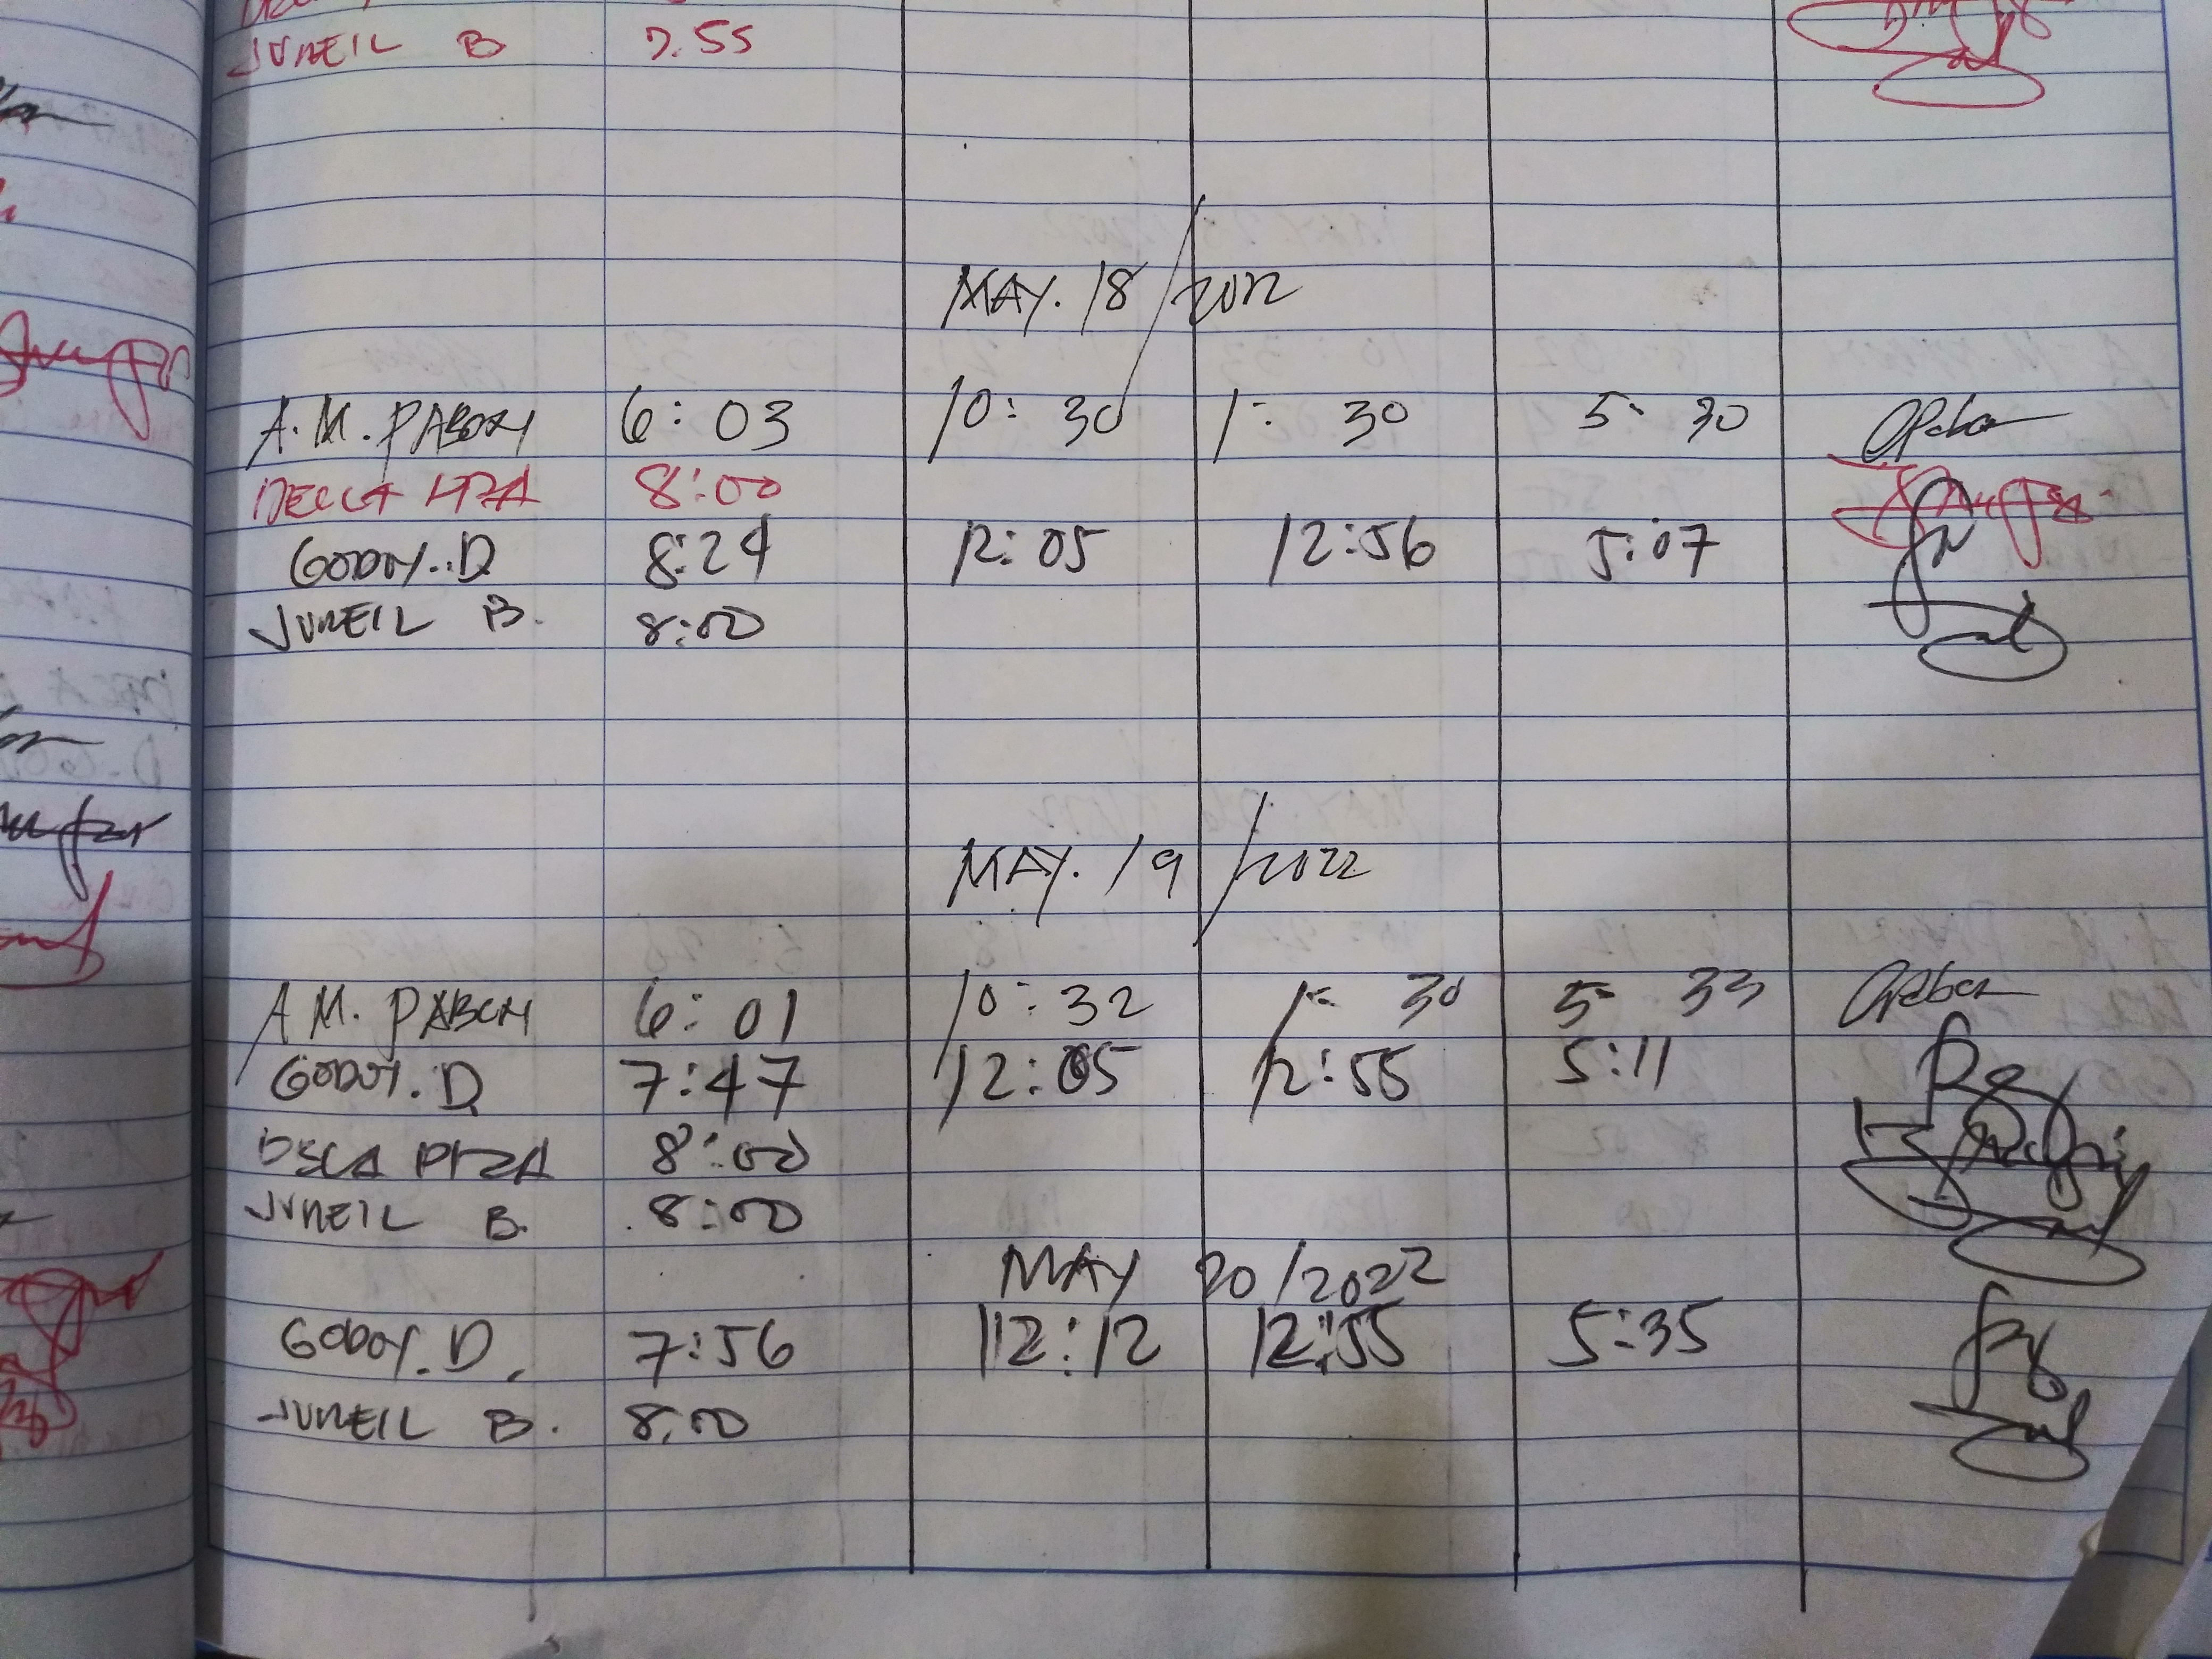 JUNEIL B 7.55
MAY. 18/2022
A.M. PABON 6:03 10:30 1:30 5:30
8:00
GODOY. D 8:24 12:05 12:56 5:07
JUNEIL B. 8:00
MAY. 19/2022
A M. PABON 6:01 10:32 1:30 5:33
GODOY. D 7:47 12:05 12:55 5:11
8:00
JUNEIL B. 8:00
MAY 20/2022
GODOY. D. 7:56 12:12 12:55 5:35
JUNEIL B. 8.00